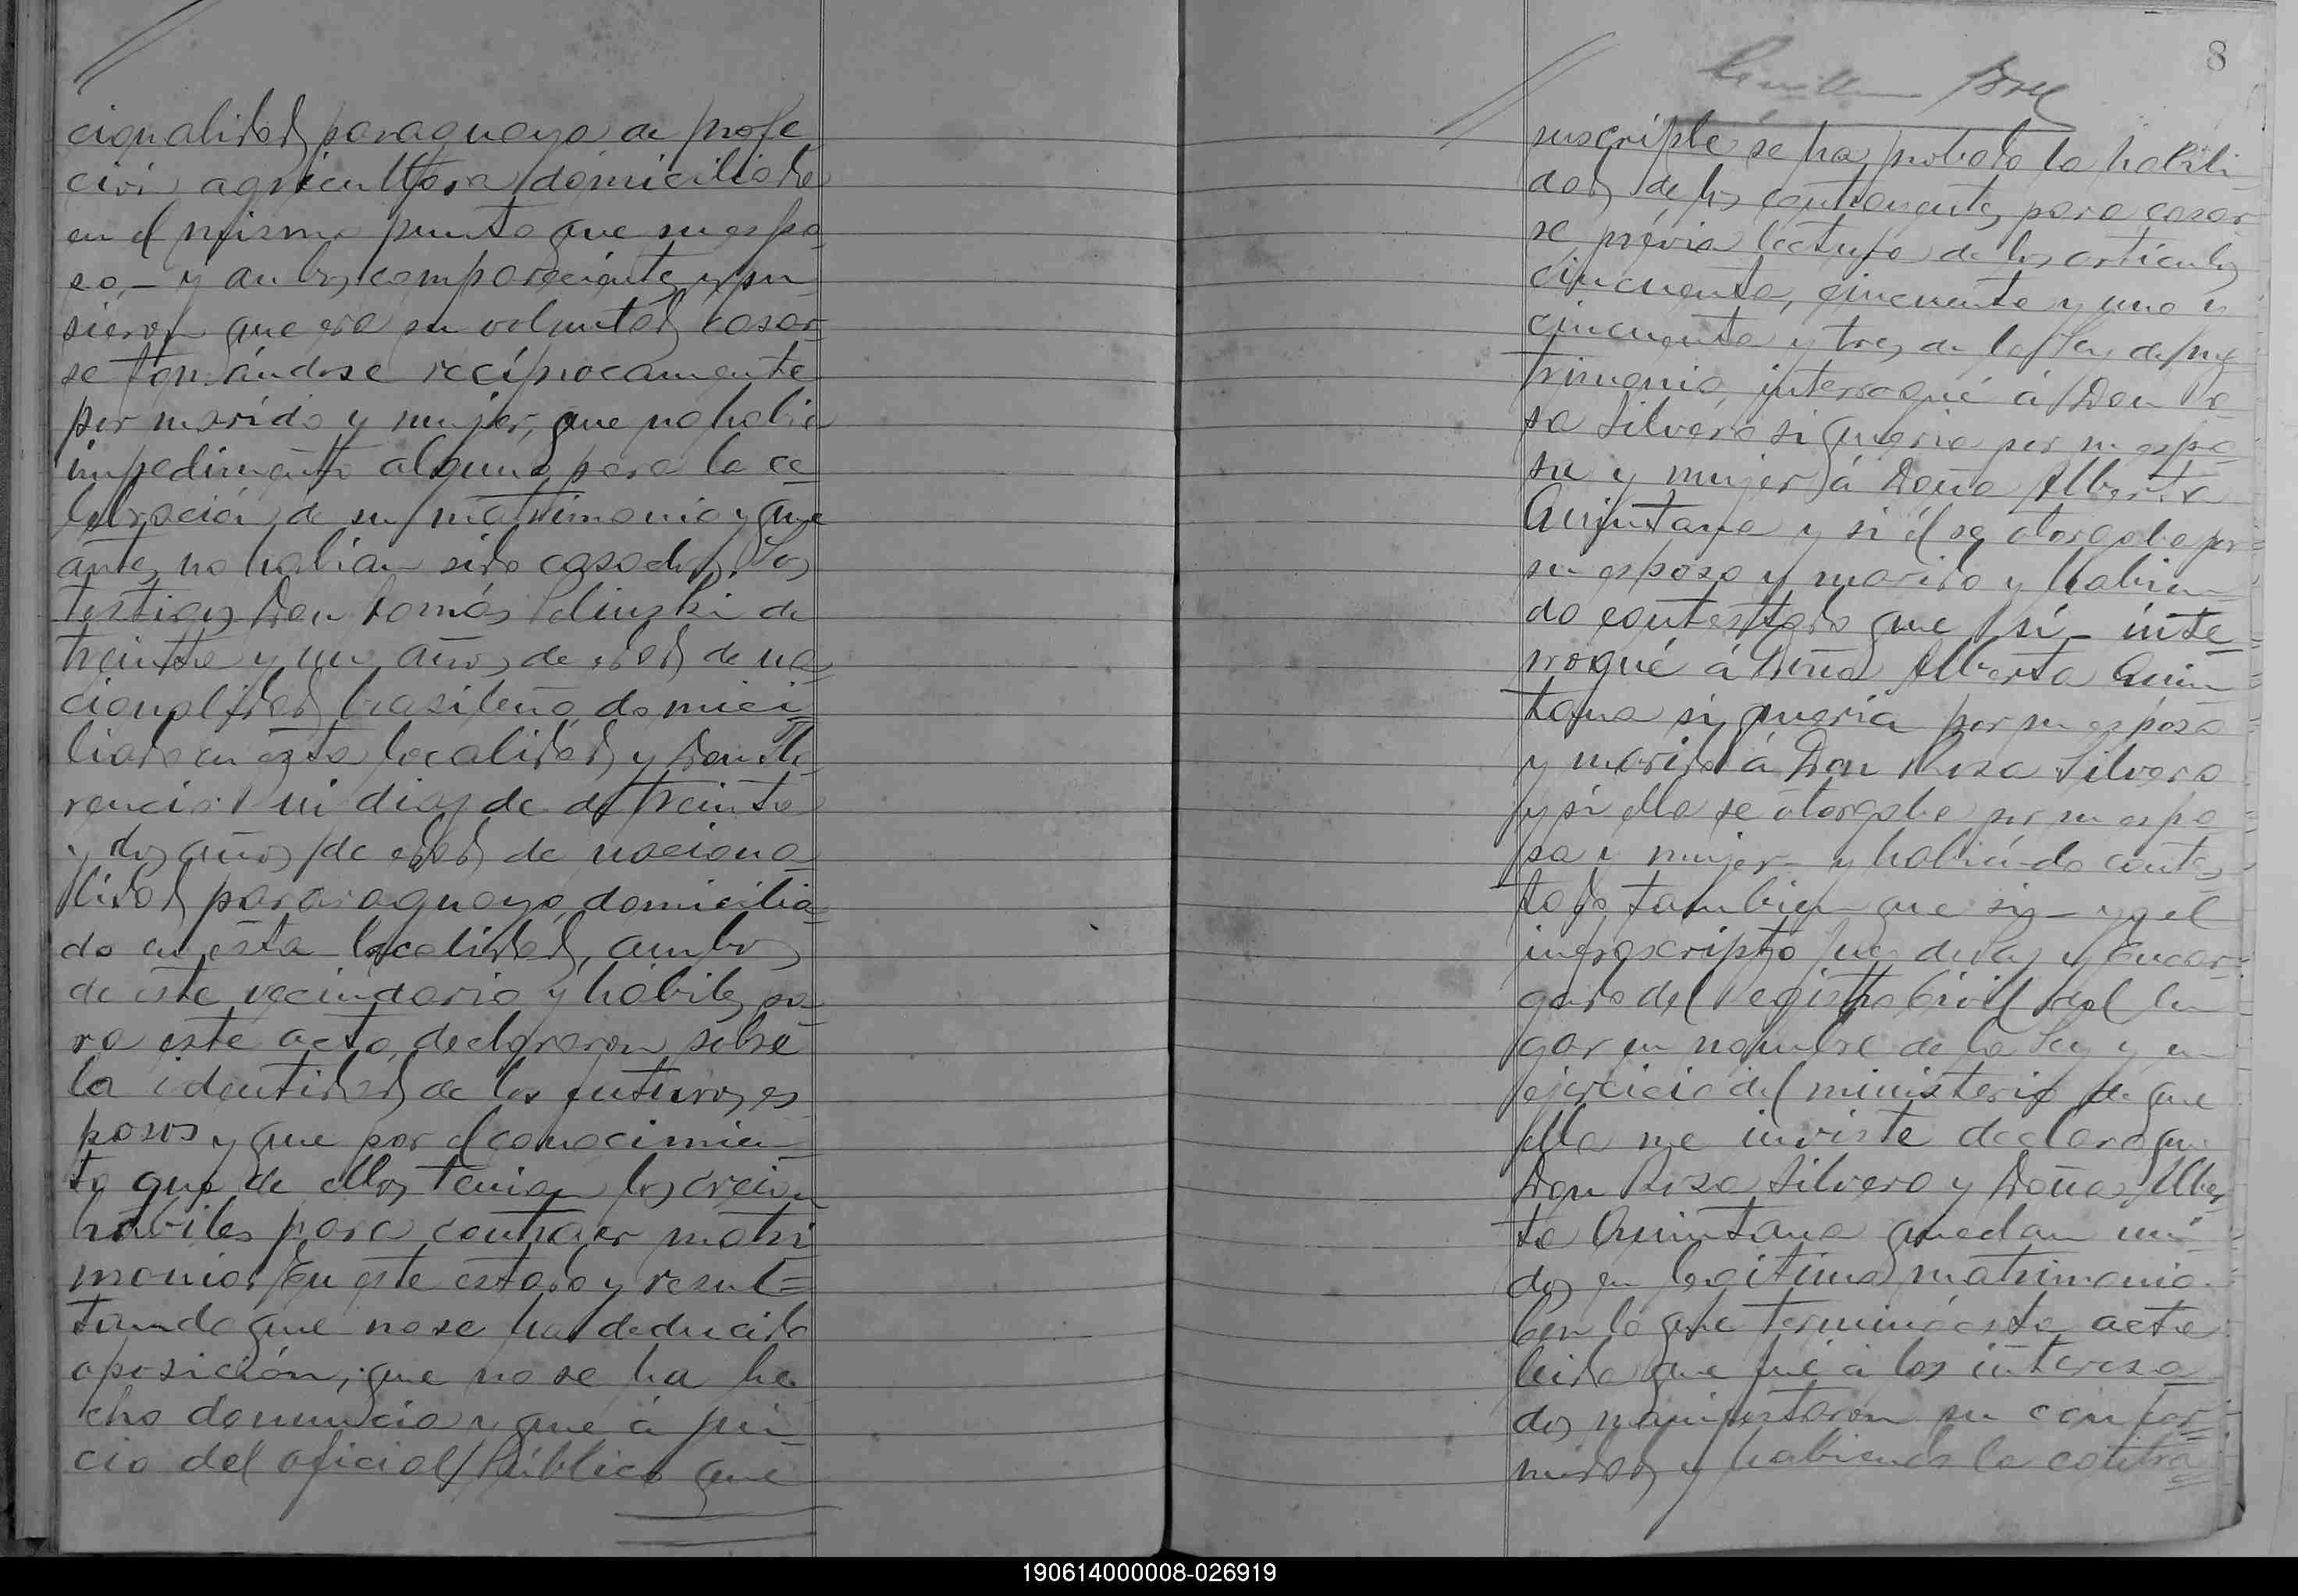 cionalidad paraguaya de profe
ción agricultora domiciliada
en el mismo punto que su espo
so,_ y ambos comparecientes
sieron que era su voluntad casar-
se tomándose recíprocamente
por marido y mujer, que no habia
impedimento alguno para la ce
lebración de su matrimonio y que
antes no habian sido casados. Los
testigos Don Tomás de
treinta y un años de edad de na
cionalidad brasileña domici
liado en esta localidad y Don Flo
rencio de treinta
y dos años de edad de naciona
lidad pararaguaya domicilia
do en esta localidad, ambos
de este vecindario y hábiles pa
ra este acto, declararon sobre
la identidad de los futuros es
posos y que por el conocimien
to que de ellos tenian los creian
hábiles para contraer matri
monio. En este estado y resul=
tando que no se ha deducido
oposición, que no se ha he
cho denuncia y que á jui
cio del oficial Público que
8
suscripte se ha probado la habili
dad de los contrayentes para casar
se, prévia lectura de los articulos
cincuenta, cincuenta y uno y
cincuenta y tres de la Ley de ma
trimonio, interrogué á Don Ro
sa Silvero si queria por su espo
sa y mujer á Doña Alberta
Quintana y si él se otorgaba por
su esposo y marido y habien
do contestado que sí_ inte
rrogué á Doña Alberta Quin
tana si queria por su esposo
y marido á Don Rosa Silvero
y si ella se otorgaba por su espo
sa y mujer_ y habiendo contes
tado tambien que si_ yo el
infrascripto Juez de Paz y Encar-
gado del Registro Civil del lu
gar en nombre de la Ley y en
ejercicio del ministerio de que
ella me inviste declaro que
Don Rosa Silvero y Doña Alber
ta Quintana quedan uni
dos en legitimo matrimonio.
Con lo que terminó esta acta
leida que fué á los interesa
dos manifestaron su confor
midad y habiendo la contra
190614000008-026919